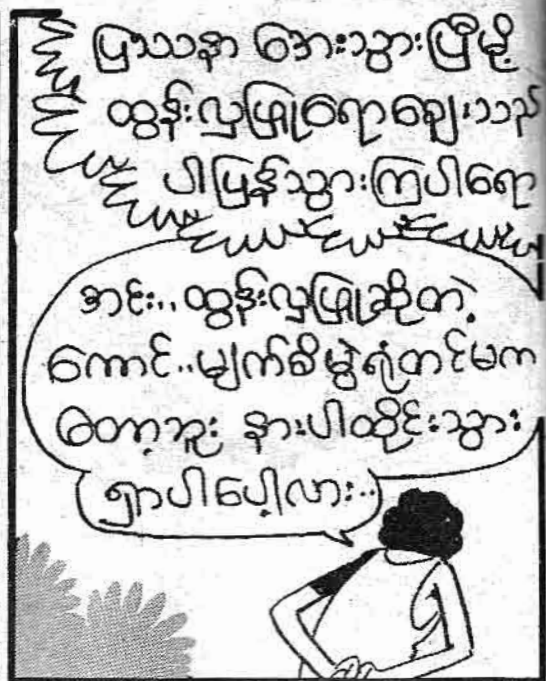 ပြဿနာ အေးသွားပြီမို့
ထွန်းလှဖြူရောချေးသည်
ပါပြန်သွားကြပါရော
အင်း..ထွန်းလှဖြူဆိုတဲ့
ကောင်..မျက်စိမွဲရုံတင်မက
တော့ဘူး နားပါထိုင်းသွား
ရှာပါပေါ့လား..